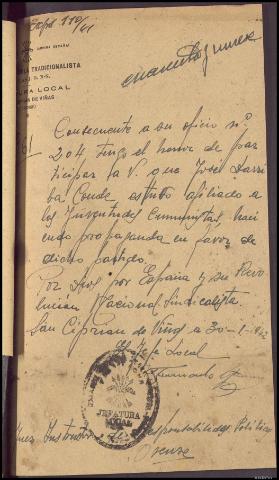 Expd 110/41
ARRIBA ESPAÑA!
TRADICIONALISTA
LOCAL
DE VIÑAS
cuarenta y nueve
Consecuente a su oficio nº.
204, tengo el honor de par
ticipar la V. que José Larri
ba Conde estuvo afiliado a
las Juventudes Comunistas, haci
endo propaganda en favor de
dicho partido.
Por Dios por España y su Revo
lución Nacional Sindicalista.
San Ciprian de Viñas a 30-1-
El Jefe Local
JEFATURA
LOCAL
Juez Instructor Responsabilidades Políticas
Orense